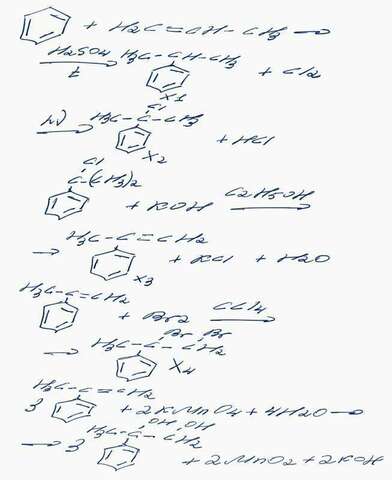 + H2C=CH-CH3 →
H2SO4 t → H3C-CH-CH3 + Cl2
X1
hν → H3C-C-CH3 + HCl
Cl
X2
Cl
C-(CH3)2
+ KOH C2H5OH →
→ H3C-C=CH2 + KCl + H2O
X3
H3C-C=CH2
+ Br2 CCl4 →
Br Br
→ H3C-C-CH2
X4
H3C-C=CH2
3 + 2KMnO4 + 4H2O →
OH OH
→ 3 H3C-C-CH2
+ 2MnO2 + 2KOH